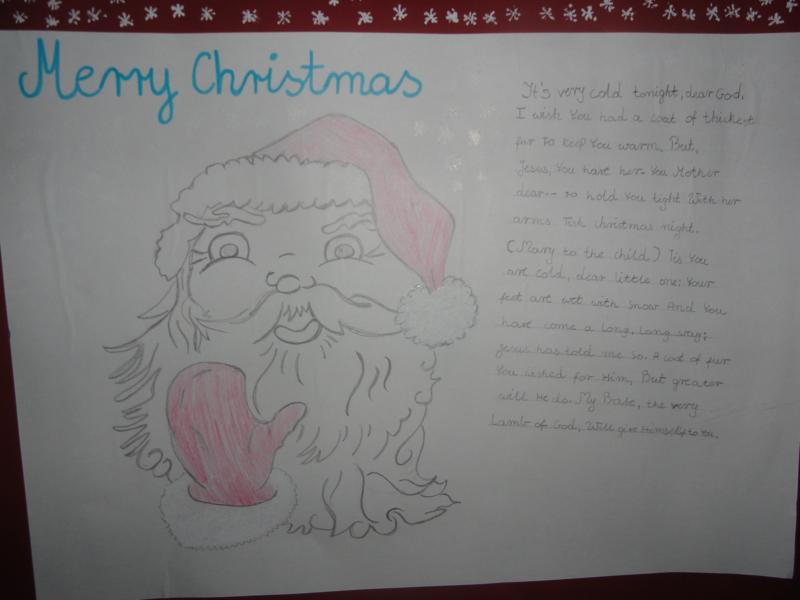 Merry Christmas
It's very cold tonight, dear God.
I wish You had a coat of thickest
fur To keep You warm. But,
Jesus, You have her- You Mother
dear-- to hold You tight With her
arms this christmas night.
(Mary to the child) Tis You
are cold, dear little one; Your
feet are wet with snow And You
have come a long, long way;
Jesus has told me so. A coat of fur
You wished for Him, But greater
will He do. My Babe, the very
Lamb of God, Will give Himself to You.